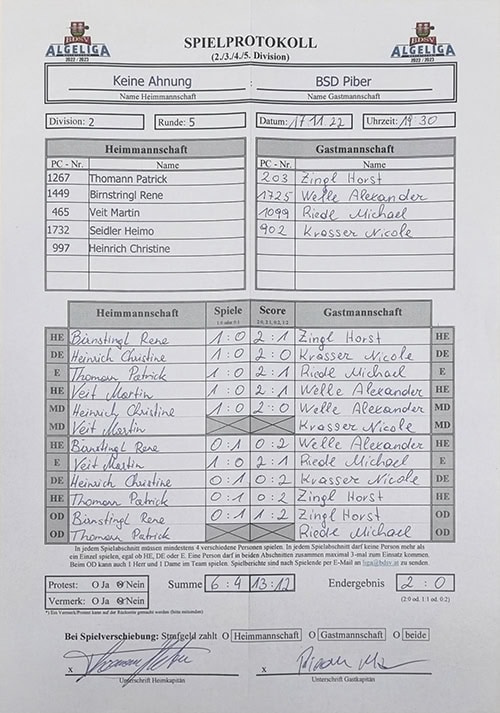 BDSV
ALGELIGA
2022 / 2023
SPIELPROTOKOLL
(2./3./4./5. Division)
BDSV
ALGELIGA
2022 / 2023
Keine Ahnung : BSD Piber
Name Heimmannschaft Name Gastmannschaft
Division: 2 Runde: 5 Datum: 17 11 22 Uhrzeit: 19 30
Heimmannschaft Gastmannschaft
PC - Nr. Name PC - Nr. Name
1267 Thomann Patrick 203 Zingl Horst
1449 Birnstringl Rene 1725 Welle Alexander
465 Veit Martin 1099 Riedl Michael
1732 Seidler Heimo 902 Krasser Nicole
997 Heinrich Christine
Heimmannschaft Spiele Score Gastmannschaft
1:0 oder 0:1 2:0, 2:1, 0:2, 1:2
HE Birnstingl Rene 1 : 0 2 : 1 Zingl Horst HE
DE Heinrich Christine 1 : 0 2 : 0 Krasser Nicole DE
E Thomann Patrick 1 : 0 2 : 1 Riedl Michael E
HE Veit Martin 1 : 0 2 : 1 Welle Alexander HE
MD Heinrich Christine 1 : 0 2 : 0 Welle Alexander MD
MD Veit Martin Krasser Nicole MD
HE Birnstingl Rene 0 : 1 0 : 2 Welle Alexander HE
E Veit Martin 1 : 0 2 : 1 Riedl Michael E
DE Heinrich Christine 0 : 1 0 : 2 Krasser Nicole DE
HE Thomann Patrick 0 : 1 0 : 2 Zingl Horst HE
OD Birnstingl Rene 0 : 1 1 : 2 Zingl Horst OD
OD Thomann Patrick Riedl Michael OD
In jedem Spielabschnitt müssen mindestens 4 verschiedene Personen spielen. In jedem Spielabschnitt darf keine Person mehr als
ein Einzel spielen, egal ob HE, DE oder E. Eine Person darf in beiden Abschnitten zusammen maximal 3-mal zum Einsatz kommen.
Beim OD kann auch 1 Herr und 1 Dame im Team spielen. Spielberichte sind nach Spielende per E-Mail an liga@bdsv.at zu senden.
Protest: O Ja O Nein Summe 6 : 4 13 : 12 Endergebnis 2 : 0
Vermerk: O Ja O Nein (2:0 od. 1:1 od. 0:2)
*) Ein Vermerk/Protest kann auf der Rückseite gemacht werden (bitte ankreuzen)
Bei Spielverschiebung: Strafgeld zahlt O Heimmannschaft O Gastmannschaft O beide
x x
Unterschrift Heimkapitän Unterschrift Gastkapitän